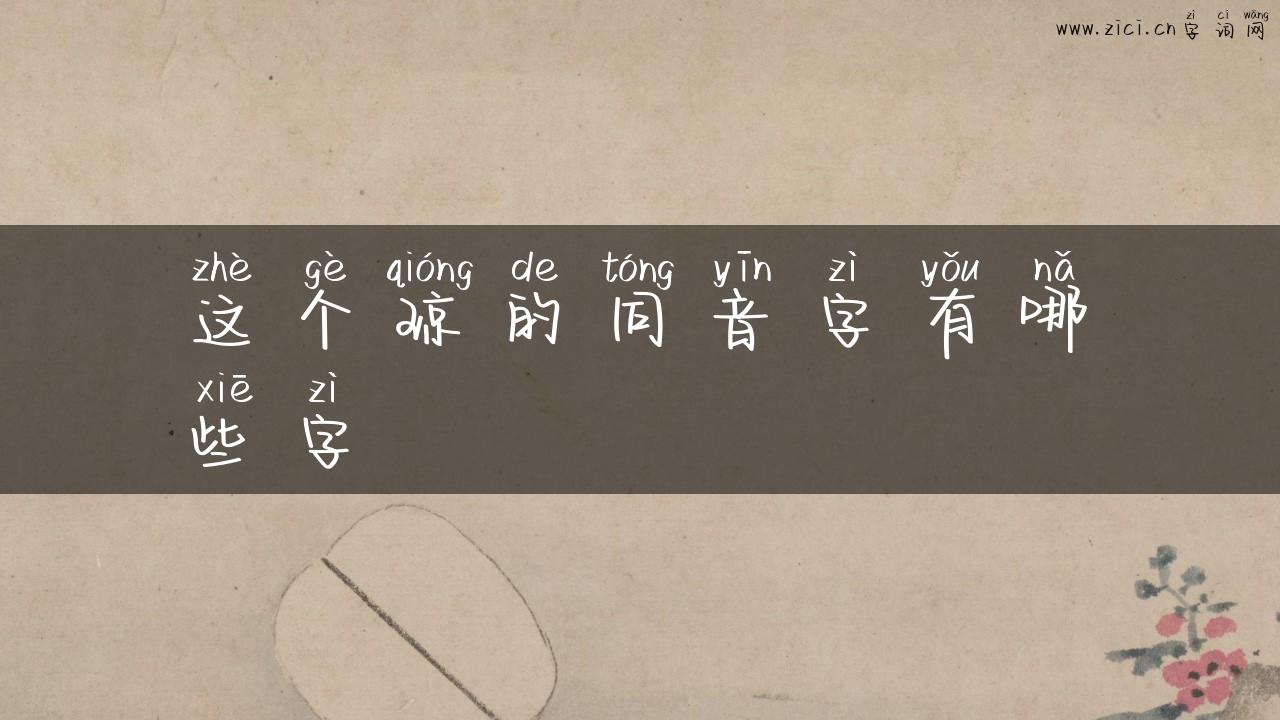 zì cí wǎng
www.zici.cn字词网
zhè gè qióng de tóng yīn zì yǒu nǎ
这个琼的同音字有哪
xiē zì
些字